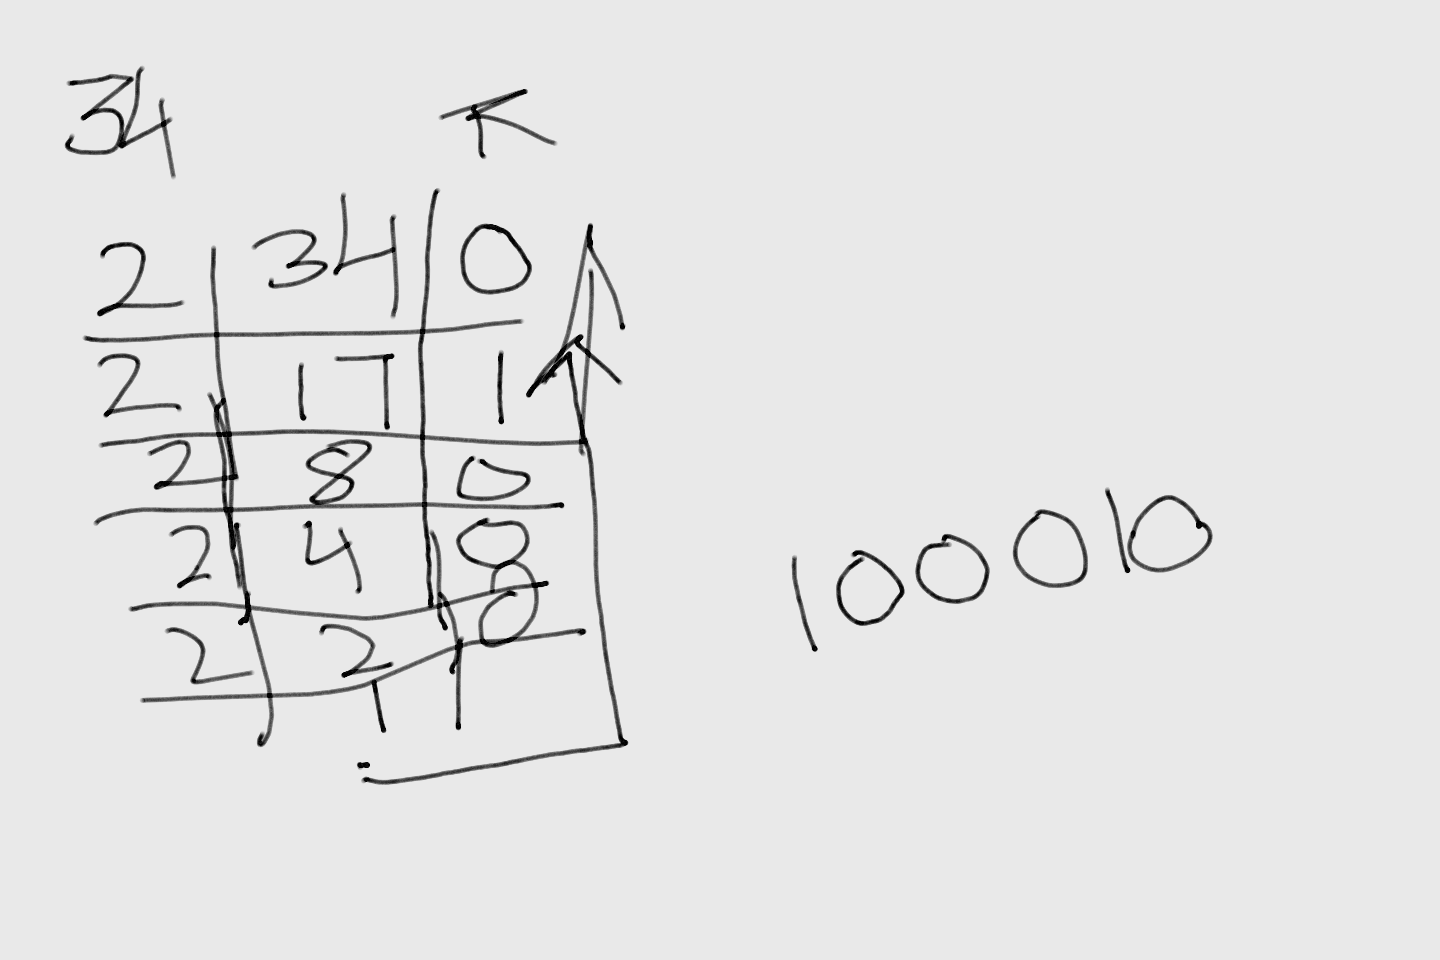 34
2 34 0
2 17 1
2 8 0
2 4 0
2 2 0
1
100010